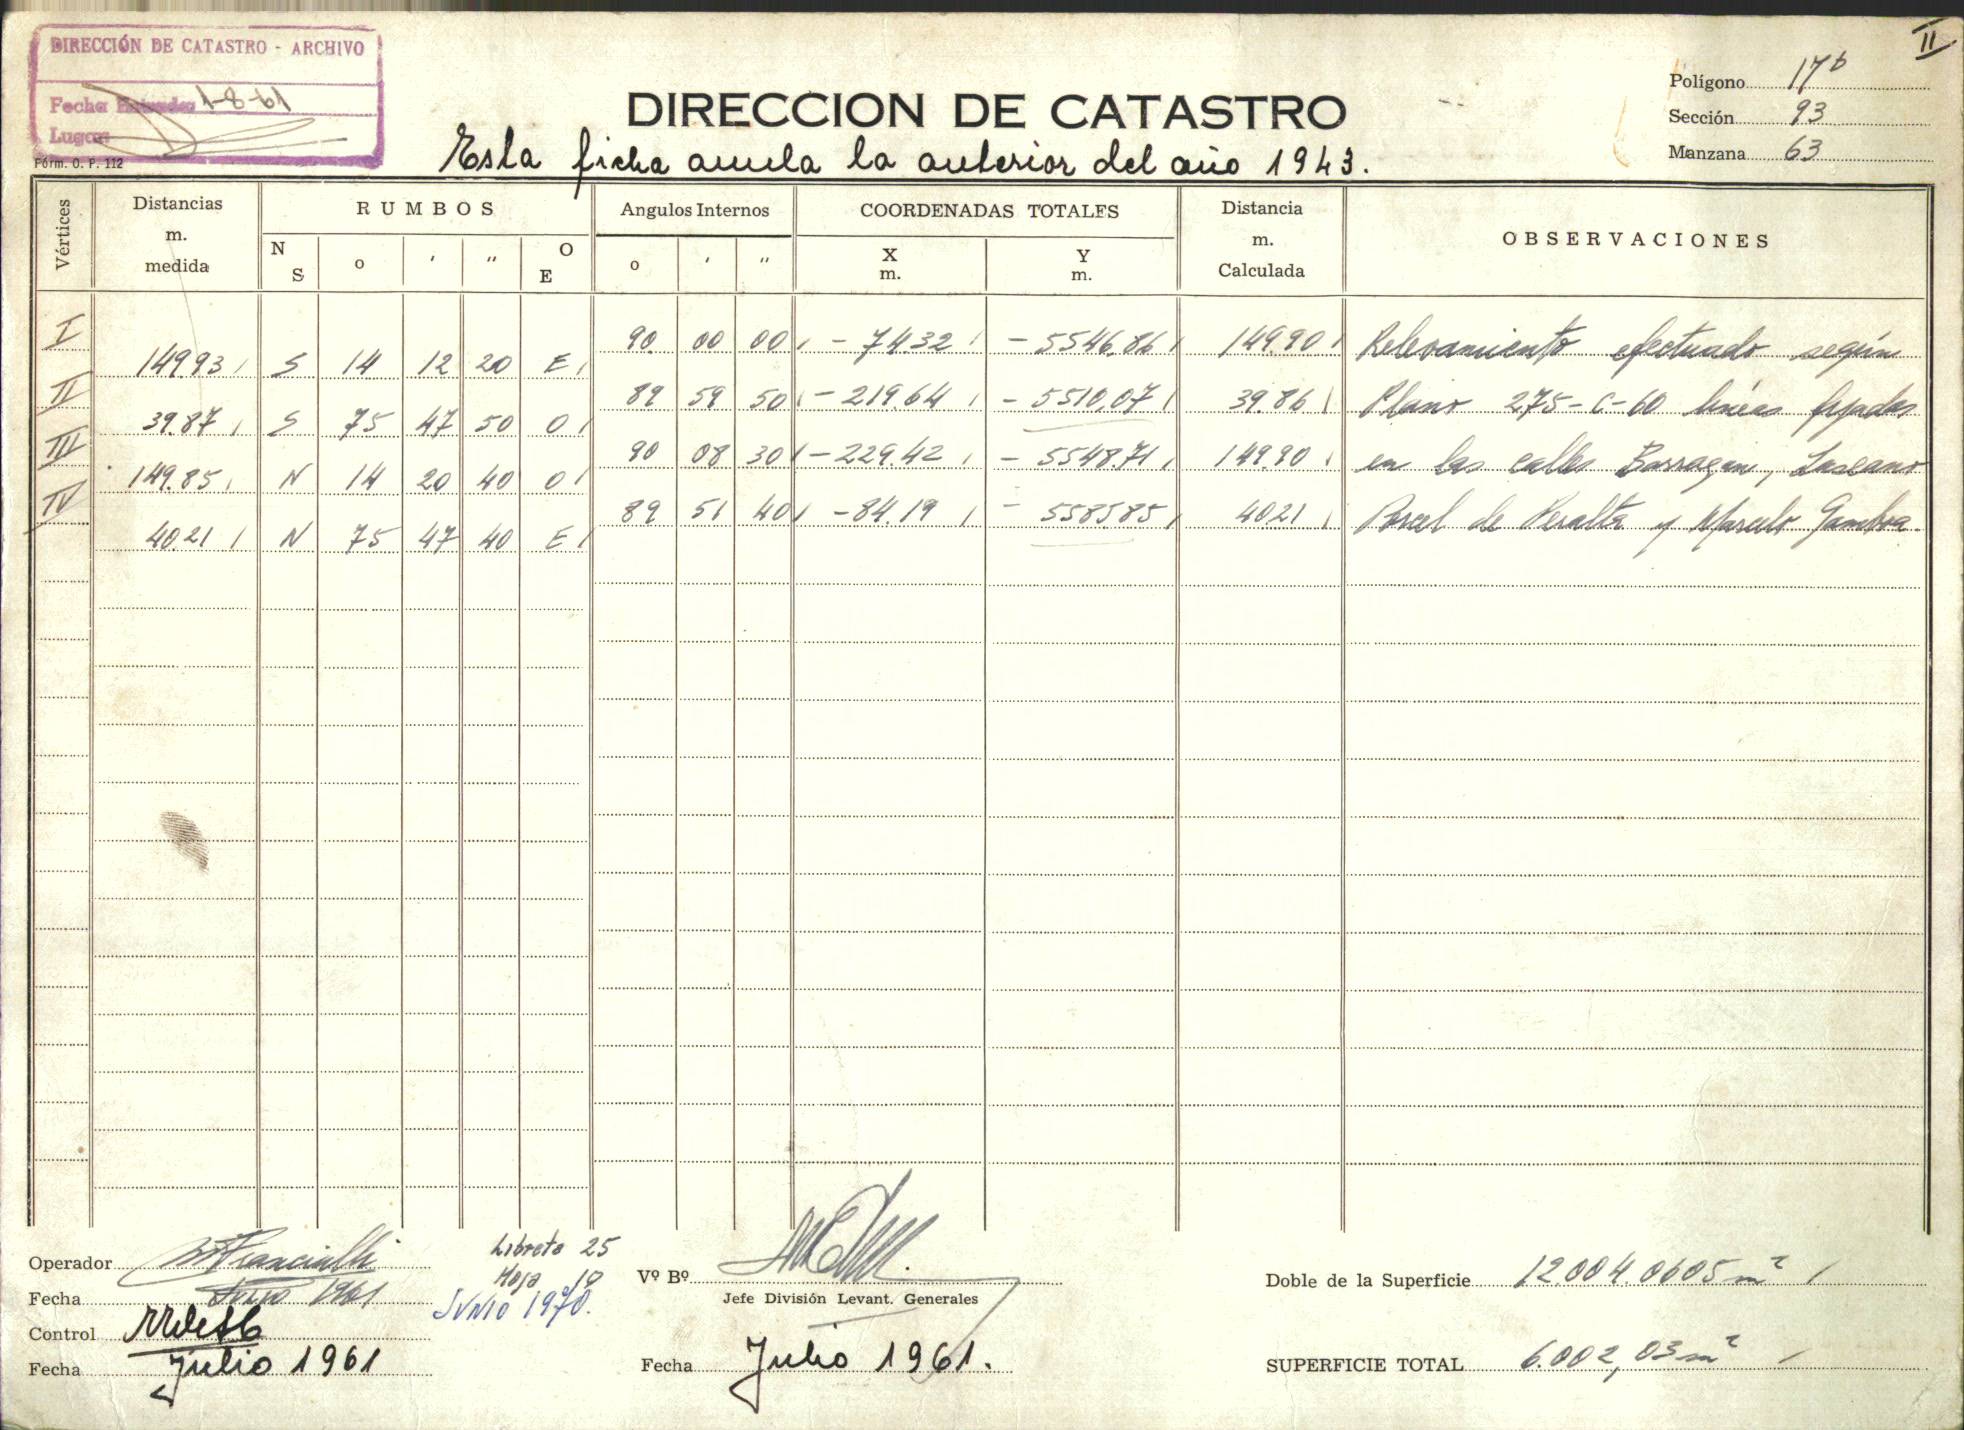 II
DIRECCIÓN DE CATASTRO - ARCHIVO
Fecha Entrada 1-8-61
Lugar
Fórm. O. P. 112
DIRECCION DE CATASTRO
Esta ficha anula la anterior del año 1943.
Polígono 17b
Sección 93
Manzana 63
Vértices
Distancias m. medida
RUMBOS
N S o ' " O E
Angulos Internos
o ' "
COORDENADAS TOTALES
X m. Y m.
Distancia m. Calculada
OBSERVACIONES
I 90 00 00 - 74.32 - 5546.86 149.90 Relevamiento efectuado según
149.93 S 14 12 20 E
II 89 59 50 - 219.64 - 5510.07 39.86 Plano 275-C-60 lineas fijadas
39.87 S 75 47 50 O
III 90 08 30 - 229.42 - 5548.71 149.90 en las calles Barragan, Lascano
149.85 N 14 20 40 O
IV 89 51 40 - 84.19 - 5585.85 40.21 Porcel de Peralta y Marcelo Gamboa.
40.21 N 75 47 40 E
Operador
Fecha Junio 1961
Control
Fecha Julio 1961
Libreta 25
Hoja 10
JUNIO 1970.
Vº Bº
Jefe División Levant. Generales
Fecha Julio 1961.
Doble de la Superficie 12.004.0605 m²
SUPERFICIE TOTAL 6.002,03 m²